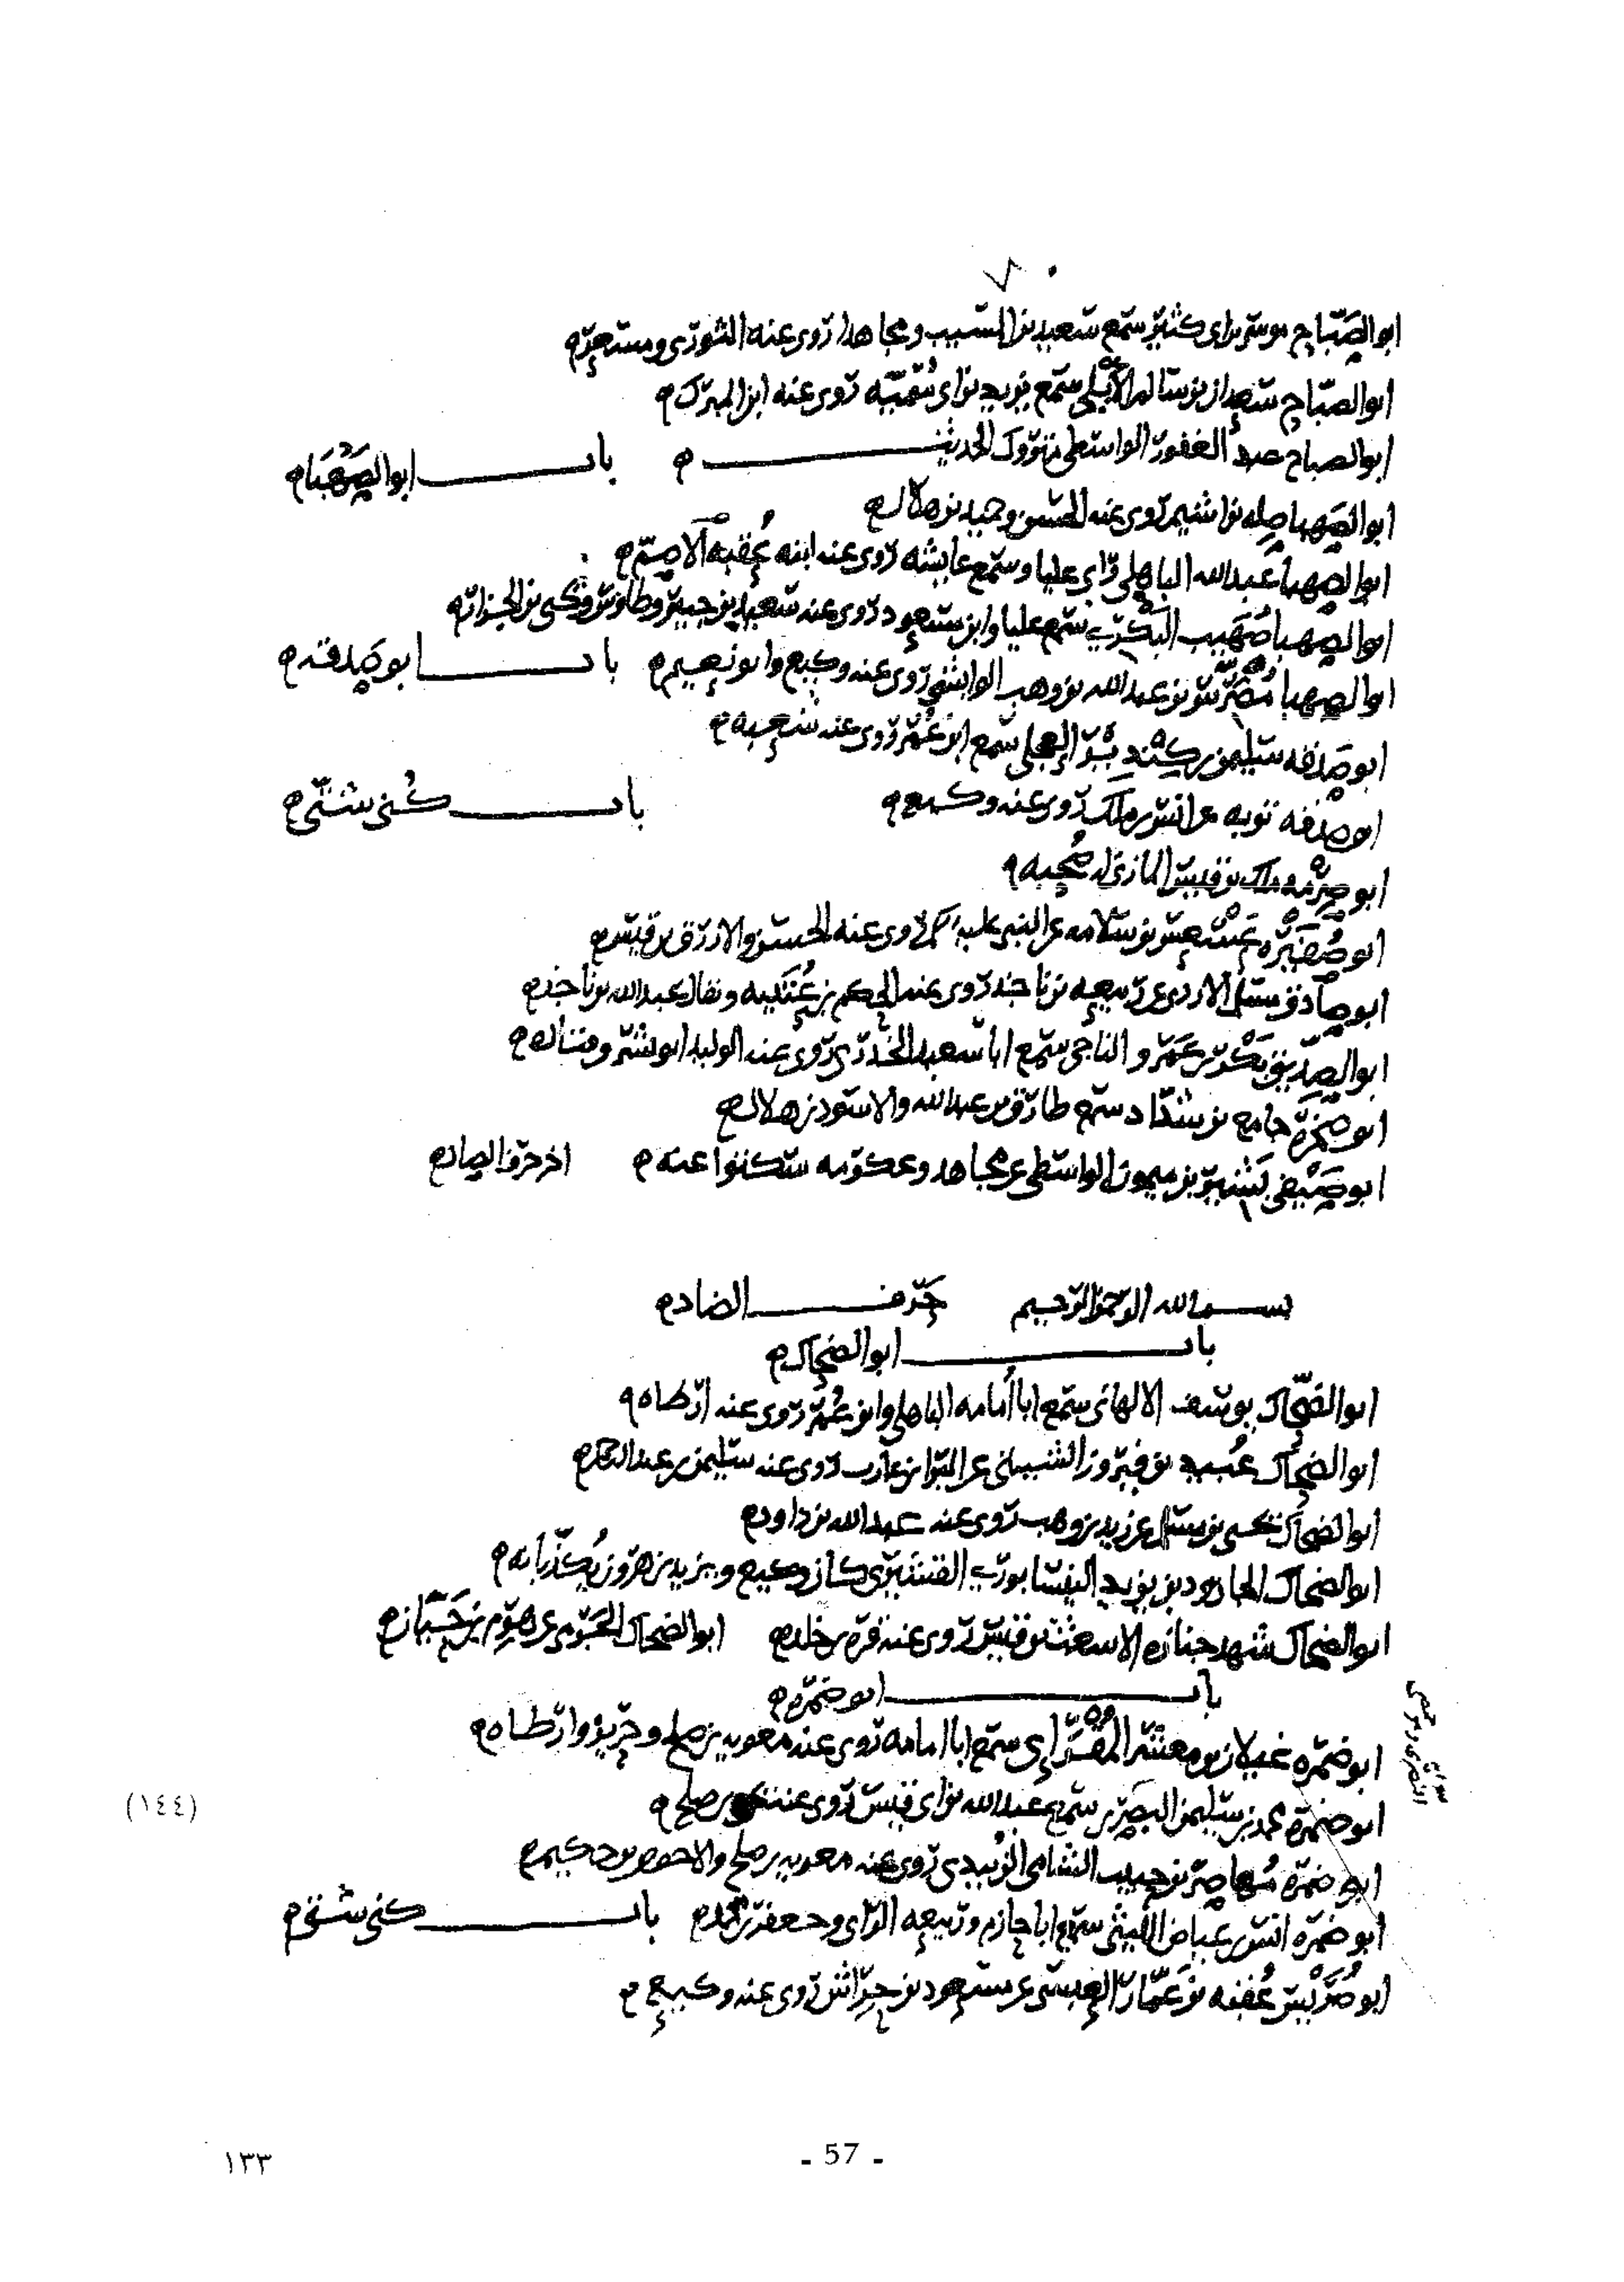 ٧٠
ابو الصَّبّاح موسى بن ابى كثير سمع سعيد بن المسيب ومجاهدا روى عنه الثورى ومسعر
ابو الصبّاح سعدان بن سالم الأيلى سمع يزيد بن ابى سُميّه روى عنه ابن المبرك
ابو الصباح عبد الغفور الواسطى متروك الحديث باب ابو الصَهْبَا
ابو الصهبا صله بن اشيم روى عنه الحسن وحميد بن هلال
ابو الصهبا عبد الله الباهلى راى عليا وسمع عايشه روى عنه ابنه عُقبه الاصمّ
ابو الصهبا صُهَيب البكرى سمع عليا وابن مسعود روى عنه سعيد بن جبير وطاوس ويحيى بن الجزار
ابو الصهبا مُضَرِّس بن عبد الله بن وهب الوابشى روى عنه وكيع وابو نعيم باب ابو صدقه
ابو صدقه سليمن بن كِنْدِير العجلى سمع ابن عُمَر روى عنه شعبه
ابو صدقه توبه عن انس بن ملك روى عنه وكيع باب كُنى شتّى
ابو صِرْمه ملك بن قيس المازنى له صُحبه
ابو صُفْيره عَسْعَس بن سلامه عن النبى عليه السلام روى عنه الحسن والازرق بن قيس
ابو صادق مسلم الازدى عن ربيعه بن ناجد روى عنه الحكم بن عُتَيبه ويقال عبد الله بن ناجد
ابو الصِدّيق بَكْر بن عَمرو الناجى سمع ابا سعيد الخُدرى روى عنه الوليد ابو بشر وقتاده
ابو صخرة جامع بن شدّاد سمع طارق بن عبد الله والاسود بن هلال
ابو صَيْفى بَشير بن ميمون الواسطى عن مجاهد وعكرمه سكتوا عنه اخر حرف الصاد
بسم الله الرحمن الرحيم حَرف الضاد
باب ابو الضحاك
ابو الضحّاك يوسف الالهانى سمع ابا أمامه الباهلى وابن عُمَر روى عنه ارطاه
ابو الضحاك عُبيد بن فيروز الشيبانى عن البرا بن عازب روى عنه سليمن بن عبد الرحمن
ابو الضحاك يحيى بن مسلم عن زيد بن وهب روى عنه عبد الله بن داود
ابو الضحاك الجارود بن يزيد النيسابورى القشيرى كان وكيع ويزيد بن هرون يُكذبانه
ابو الضحاك شهد جنازه الاشعث بن قيس روى عنه قره بن خلد ابو الضحاك الجَرْمى عن هَرِم بن حَيّان
باب ابو ضمرة
ابو ضمره غيلان بن معشر المُقرَاى سمع ابا امامه روى عنه معويه بن صلح وحَريز وارطاه
ابو ضمرة محمد بن سليمن البصرى سمع عبد الله بن ابى قيس روى عنه بن صلح
ابو ضمرة مُهاصر بن حبيب الشامى الزُبيدى روى عنه معويه بن صلح والاحوص بن حكيم
ابو ضمره انس بن عياض الليثى سمع ابا حازم وربيعه الراى وجعفر بن محمد باب كنى شتى
ابو ضُرَيْس عُقبه بن عَمّار العبسى عن مسعود بن حِراش روى عنه وكيع
(١٤٤)
- 57 -
١٣٣